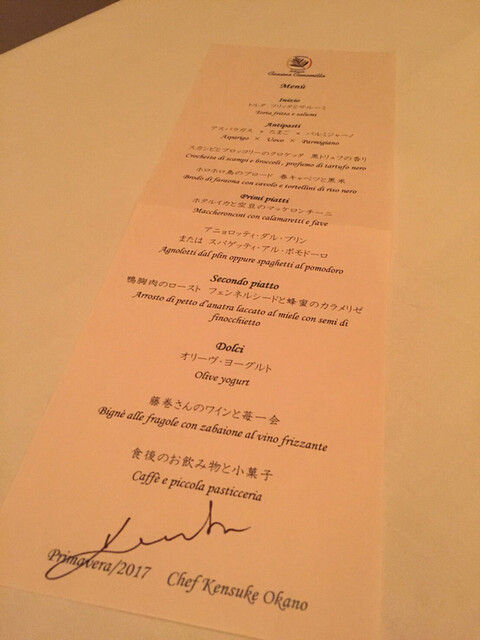 Menù
Inizio
トルタ フリッタとサルーミ
Torta fritta e salumi
Antipasti
アスパラガス × たまご × パルミジャーノ
Asparago × Uovo × Parmigiano
スカンピとブロッコリーのクロケッタ 黒トリュフの香り
Crocchetta di scampi e broccoli, profumo di tartufo nero
ホロホロ鳥のブロード 春キャベツと黒米
Brodo di faraona con cavolo e tortellini di riso nero
Primi piatti
ホタルイカと空豆のマッケローンチーニ
Maccheroncini con calamaretti e fave
アニョロッティ・ダル・プリン
または スパゲッティ・アル・ポモドーロ
Agnolotti dal plin oppure spaghetti al pomodoro
Secondo piatto
鴨胸肉のロースト フェンネルシードと蜂蜜のカラメリゼ
Arrosto di petto d'anatra laccato al miele con semi di
finocchietto
Dolci
オリーヴ・ヨーグルト
Olive yogurt
藤巻さんのワインと苺一会
Bignè alle fragole con zabaione al vino frizzante
食後のお飲み物と小菓子
Caffè e piccola pasticceria
Primavera/2017 Chef Kensuke Okano